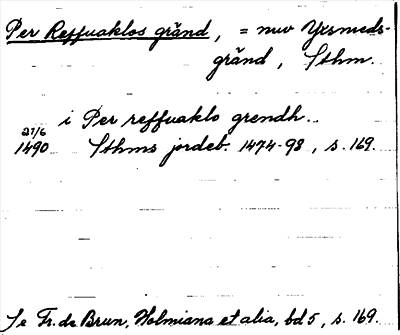 Per Reffuaklos gränd, = nuv Yxsmeds-
gränd, Sthm.
i Per reffuaklo grendh..
27/6
1490 Sthms jordeb. 1474-98, s. 169.
Se Fr. de Brun, Holmiana et alia, bd 5, s. 169.